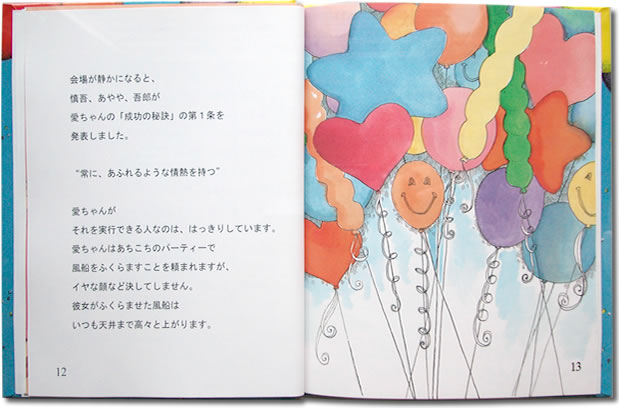 会場が静かになると、
慎吾、あやや、吾郎が
愛ちゃんの「成功の秘訣」の第1条を
発表しました。
“常に、あふれるような情熱を持つ”
愛ちゃんが
それを実行できる人なのは、はっきりしています。
愛ちゃんはあちこちのパーティーで
風船をふくらますことを頼まれますが、
イヤな顔など決してしません。
彼女がふくらませた風船は
いつも天井まで高々と上がります。
12
13